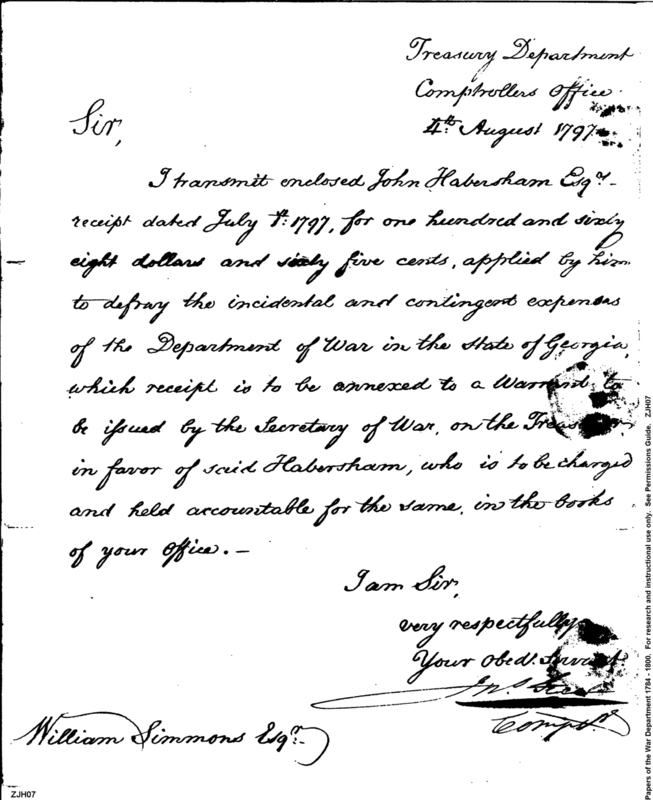 Treasury Department
Comptrollers Office
4th August 1797
Sir,
I transmit enclosed John Habersham Esqr.
receipt dated July 1st 1797, for one hundred and sixty
eight dollars and sixty five cents, applied by him
to defray the incidental and contingent expenses
of the Department of War in the State of Georgia,
which receipt is to be annexed to a Warrant to
be issued by the Secretary of War, on the Treasurer
in favor of said Habersham, who is to be charged
and held accountable for the same, in the books
of your office. —
I am Sir,
very respectfully
Your obed. Servant
Jno. Steele
Compr.
William Simmons Esqr.
ZJH07
Papers of the War Department 1784 - 1800. For research and instructional use only. See Permissions Guide. ZJH07